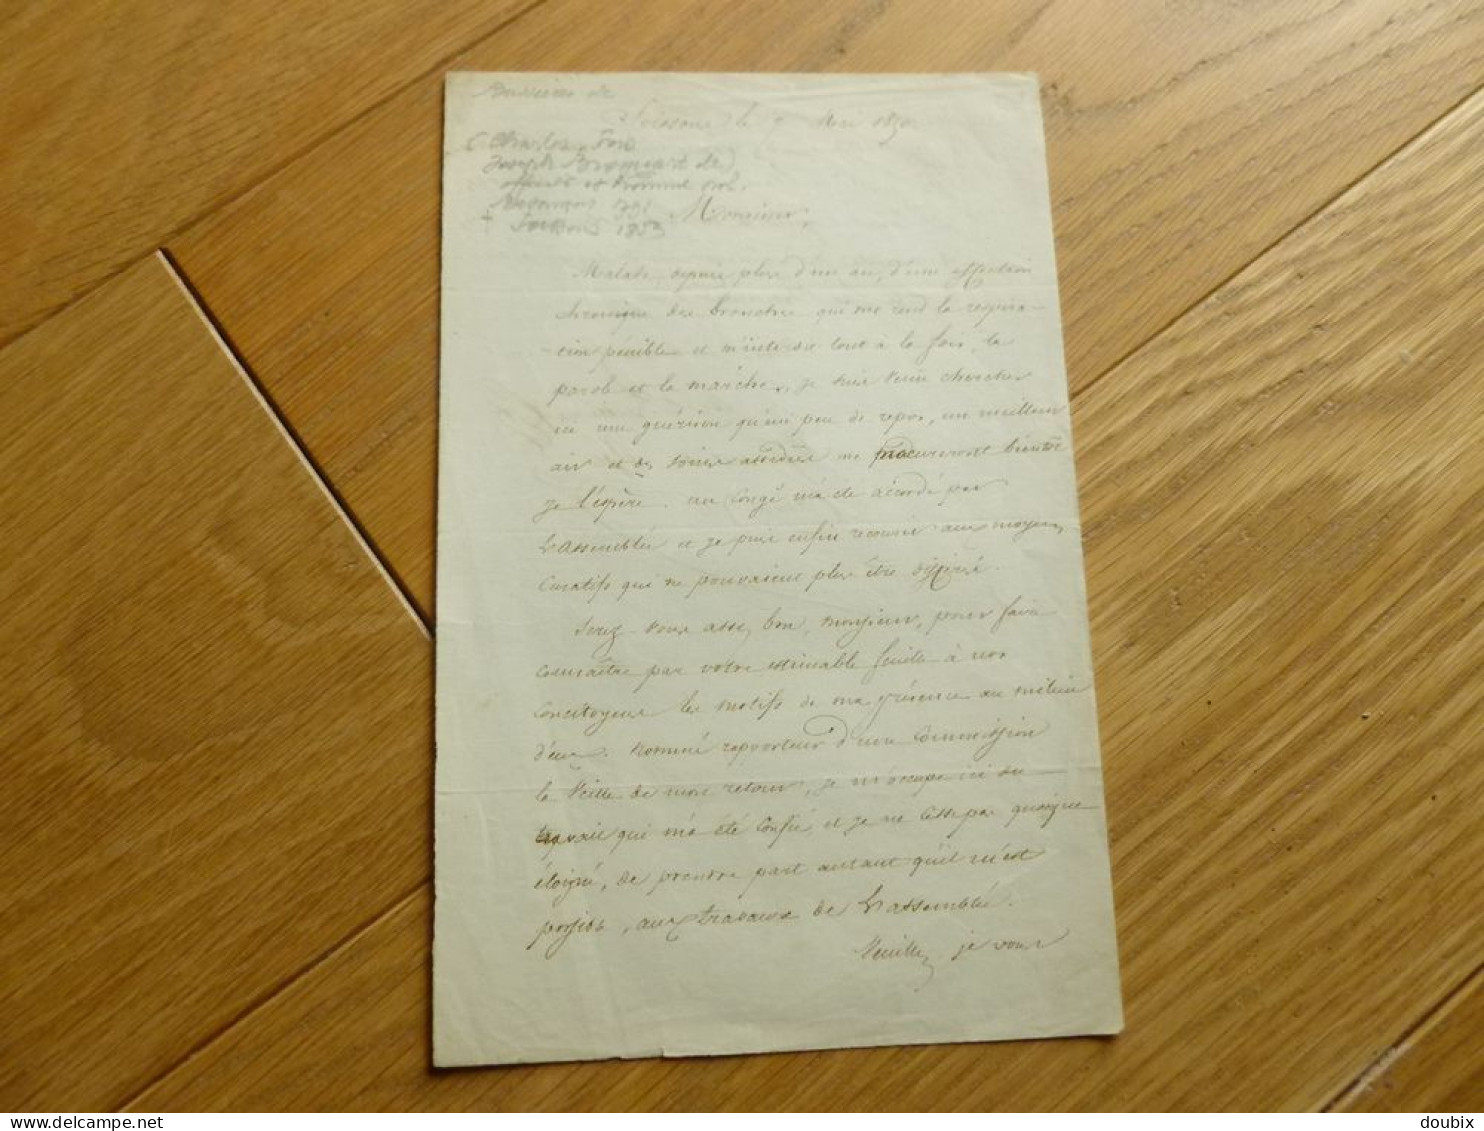 Bussieres de
Soissons le 7 Mai 1850
(Charles
Joseph
officier et homme pol.
† Soissons 1853
Monsieur,
Malade, depuis plus d'un an, d'une affection
chronique des bronches qui me rend la respira-
-tion pénible et m'interdit tout à la fois, la
parole et la marche, je suis venu chercher
ici une guérison qu'un peu de repos, un meilleur
air et des soins assidus me procureront bientôt
je l'espère. un congé m'a été accordé par
L'assemblée et je puis enfin recourir aux moyens
curatifs qui ne pouvaient plus être différé.
Serez-vous assez bon, monsieur, pour faire
connaître par votre estimable feuille à nos
concitoyens les motifs de ma présence au milieu
d'eux. Nommé rapporteur d'une Commission
la veille de mon retour, je m'occupe ici du
travail qui m'a été confié, et je ne cesse pas quoique
éloigné, de prendre part autant qu'il m'est
possible, aux travaux de L'assemblée.
Veuillez je vous
delcampe.net
doubix